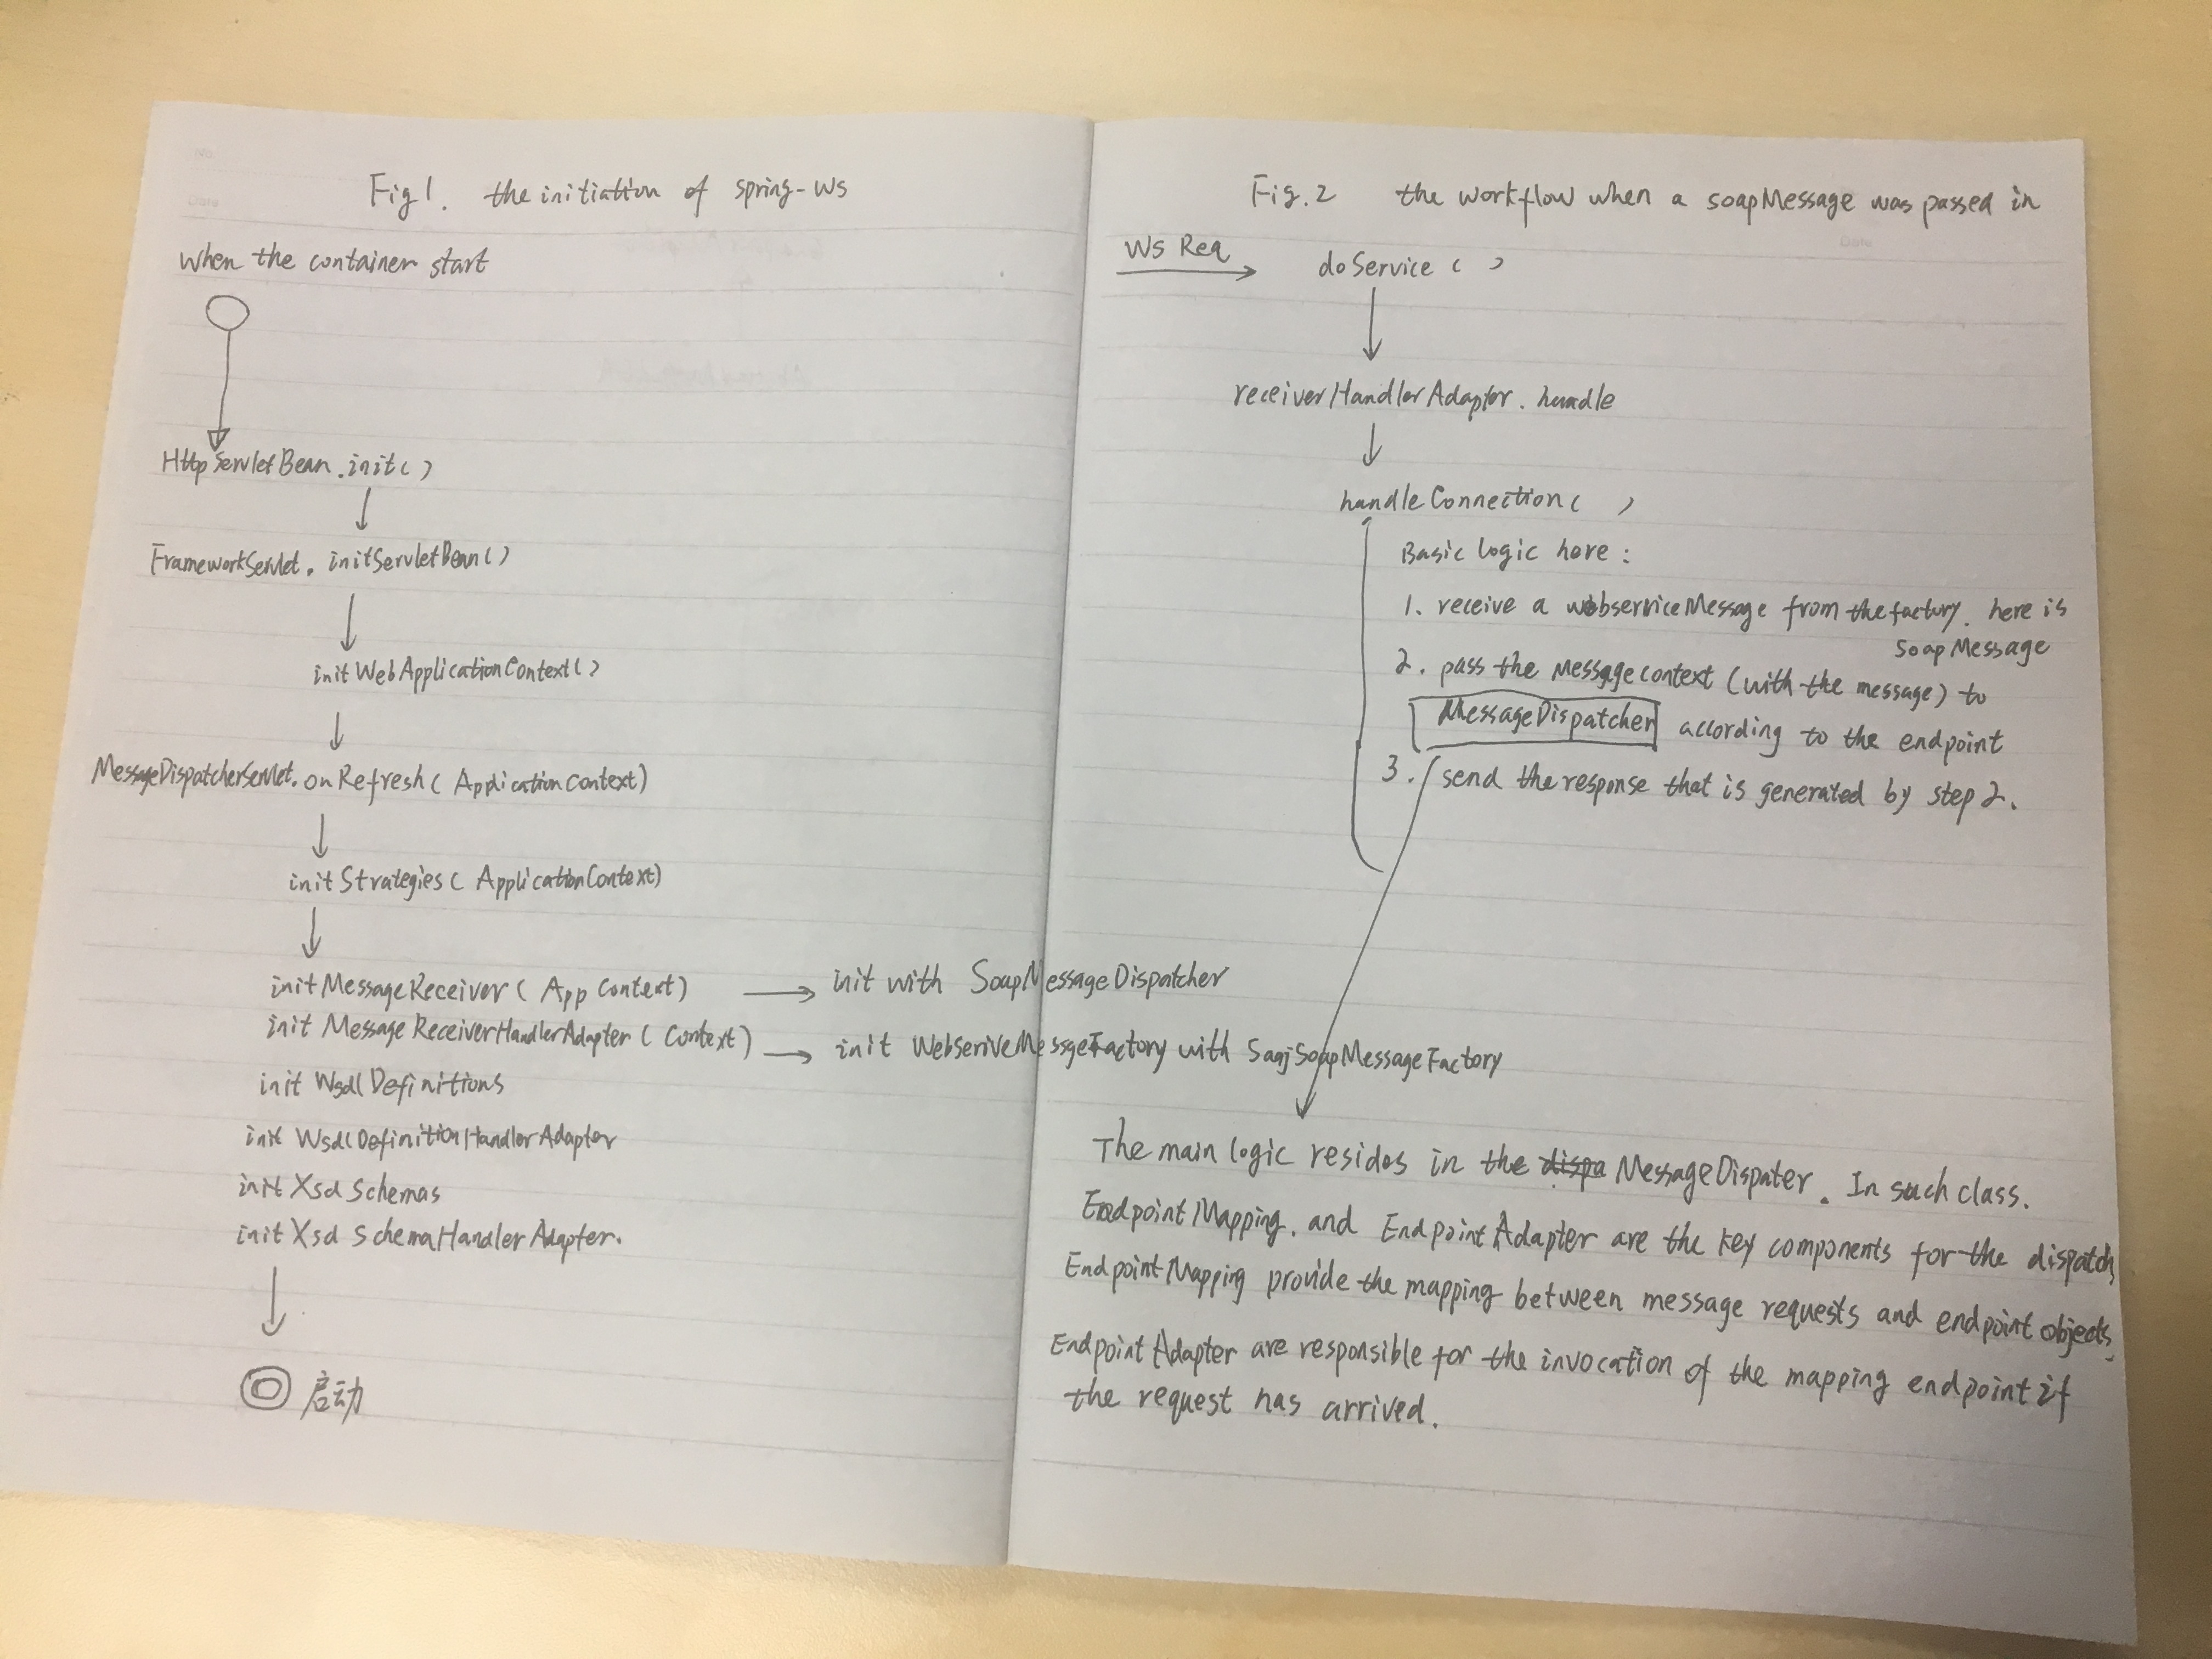 Fig 1. the initiation of spring-ws
when the container start
HttpServletBean.init()
FrameworkServlet. initServletBean()
initWebApplicationContext()
MessageDispatcherServlet.onRefresh( ApplicationContext)
initStrategies( ApplicationContext)
initMessageReceiver( App Context) → init with SoapMessageDispatcher
init MessageReceiverHandlerAdapter( Context) → init WebseriveMessgeFactory with SaajSoapMessageFactory
init WsdlDefinitions
init WsdlDefinitionHandlerAdapter
init XsdSchemas
init XsdSchemaHandlerAdapter.
启动
Fig.2 the workflow when a soapMessage was passed in
WS Req doService ( )
receiverHandlerAdaptor. handle
handleConnection( )
Basic logic here :
1. receive a webserviceMessage from the factory. here is
SoapMessage
2. pass the Messagecontext (with the message) to
MessageDispatcher according to the endpoint
3. send the response that is generated by step 2.
The main logic resides in the dispa MessageDispater. In such class.
EndpointMapping. and EndpointAdapter are the key components for the dispatch,
EndpointMapping provide the mapping between message requests and endpoint objects,
EndpointAdapter are responsible for the invocation of the mapping endpoint if
the request has arrived.